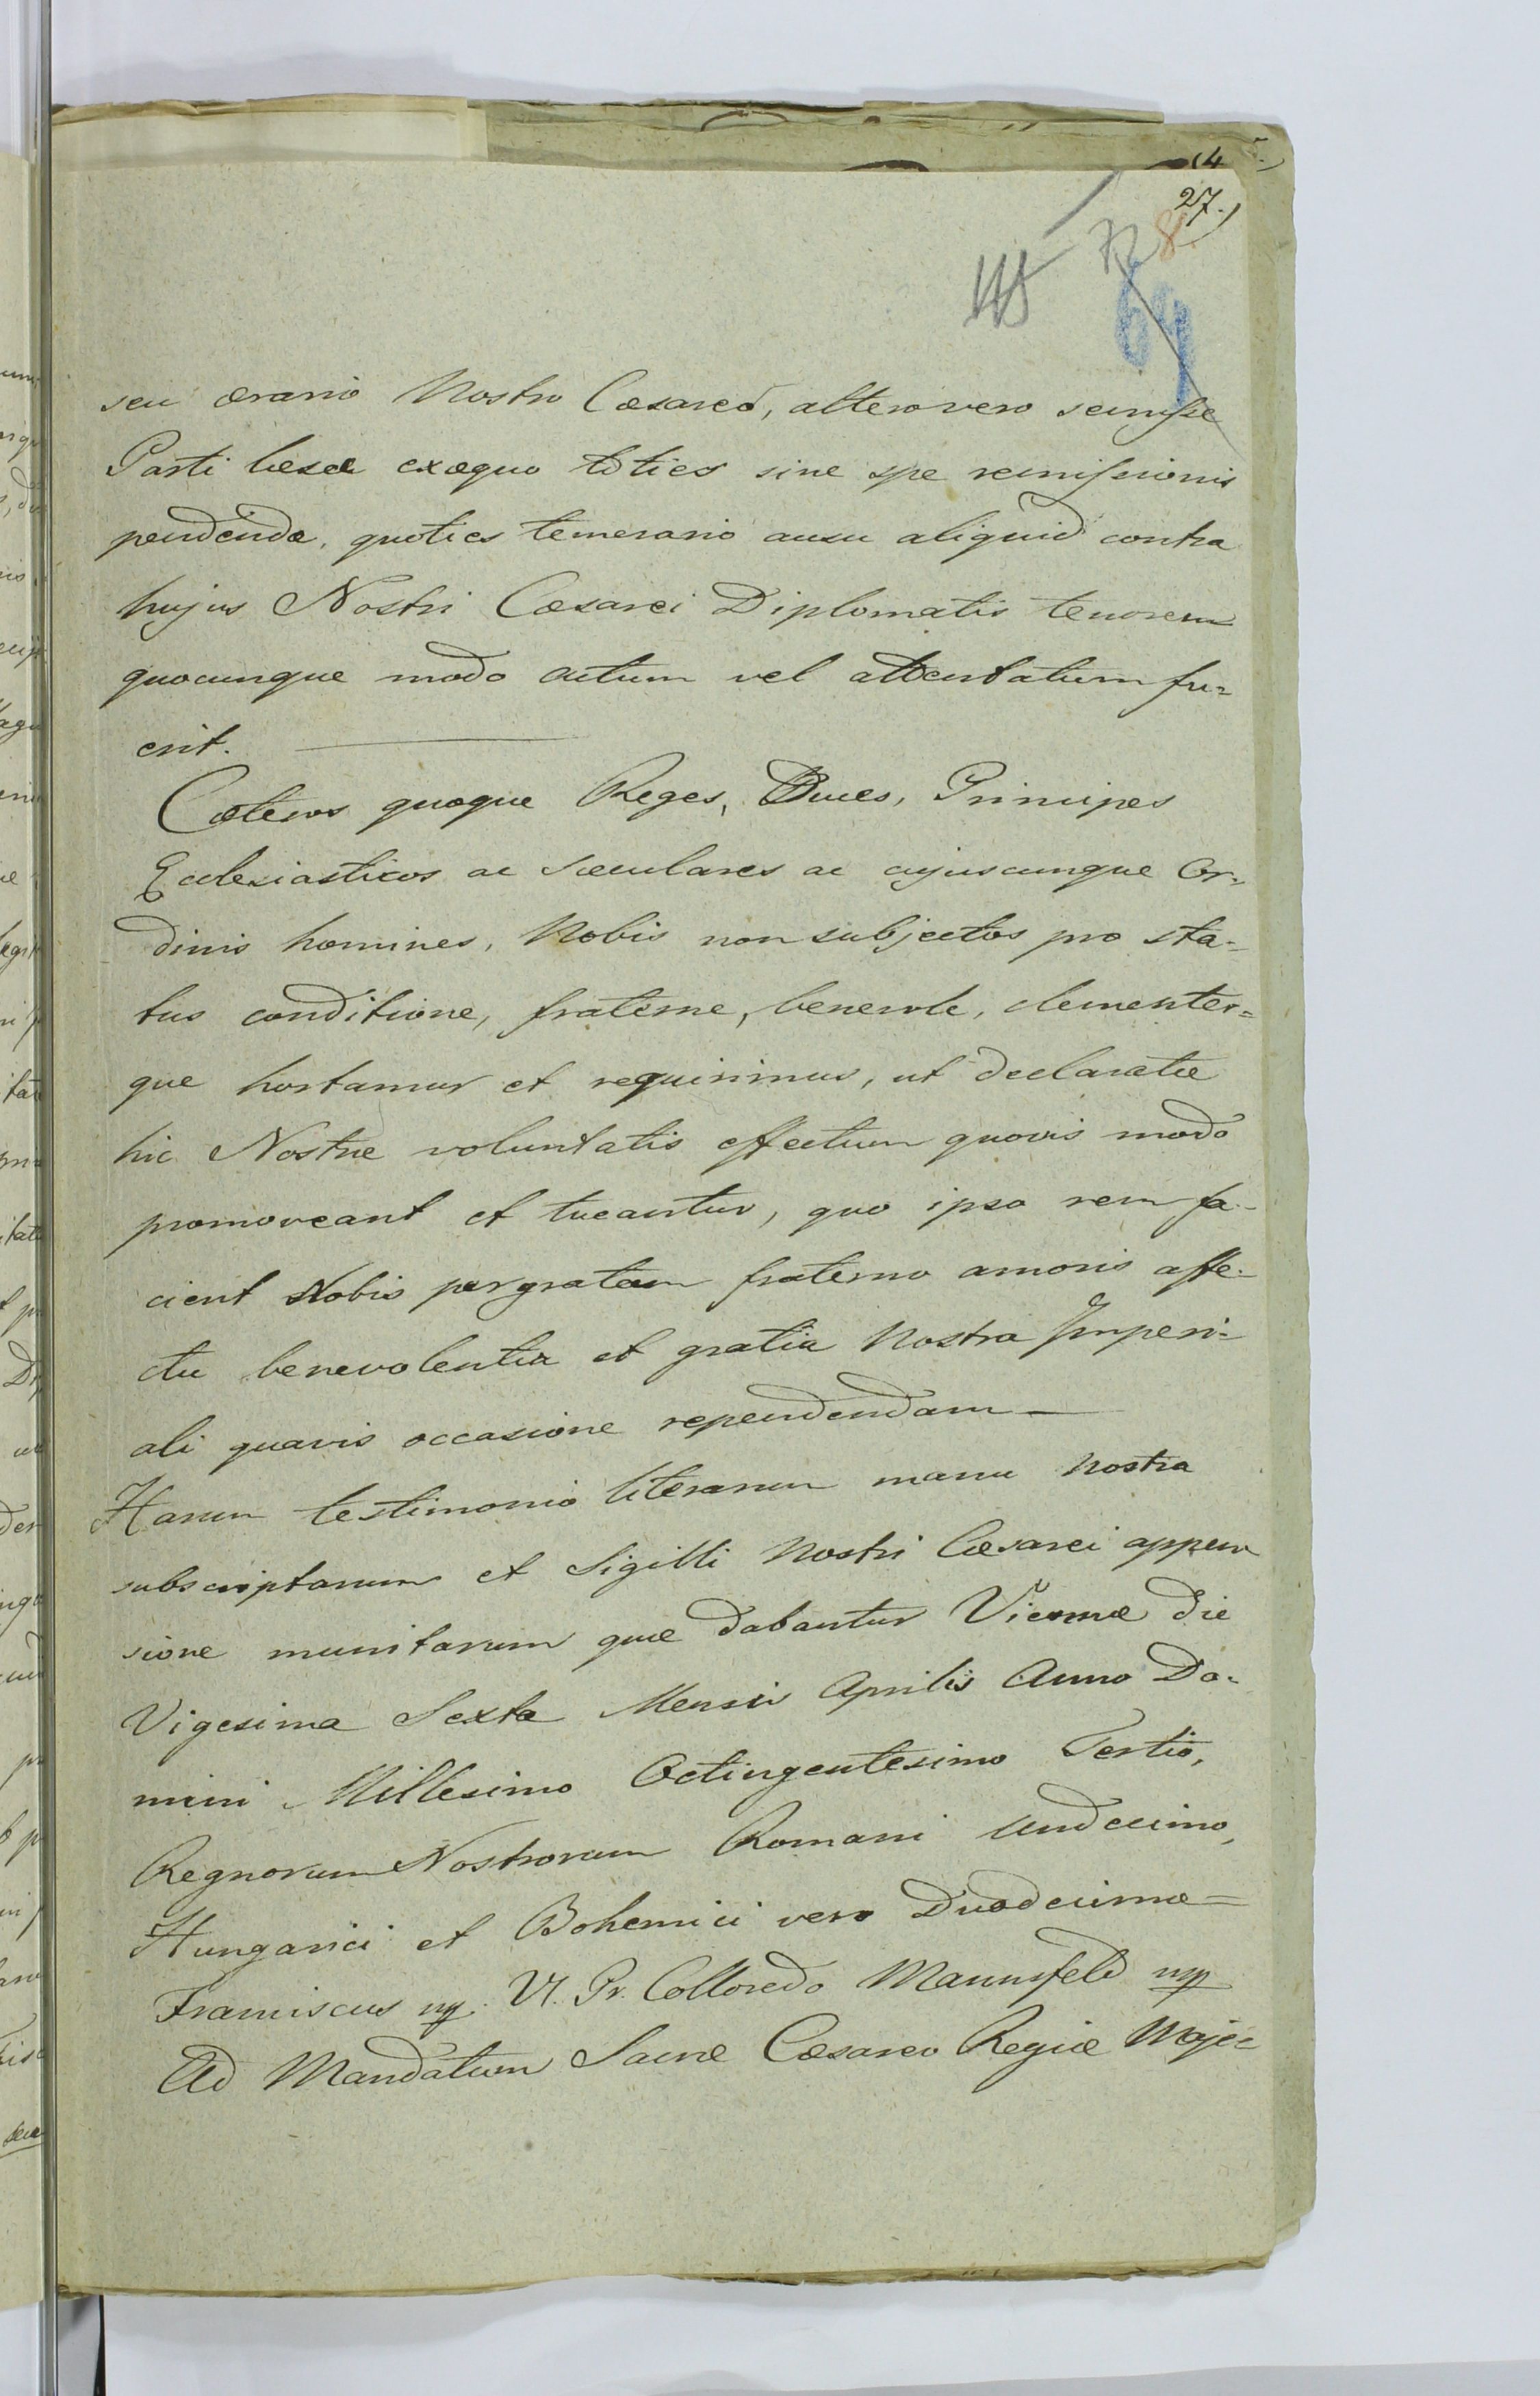 (4
27.)
8.
72
115
69
seu ærario Nostro Cæsareo, altero vero semisse
Parti læsæ exæquo toties sine spe remissionis
pendenda, quoties temerario ausu aliquid contra
hujus Nostri Cæsarei Diplomatis tenorem
quocunque modo actum vel attentatum fu=
erit.
Cæteros quoque Reges, Duces, Principes
Ecclesiasticos ac sæculares ac cujuscunque Or=
dinis homines, Nobis non subjectos pro sta=
tus conditione, fraterne, benevole, clementer=
que hortamur et requirimus, ut declaratæ
hic Nostræ voluntatis effectum quovis modo
promoveant et tueantur, quo ipso rem fa=
cient Nobis pergratam fraterno amoris affe=
ctu benevolentia et gratia Nostra Imperi=
ali quavis occasione rependendam —
Harum testimonio literarum manu Nostra
subscriptarum et Sigilli Nostri Cæsarei appen
sione munitarum quæ dabantur Viennæ die
Vigesima Sexta Mensis Aprilis Anno Do=
mini Millesimo Octingentesimo Tertio,
Regnorum Nostrorum Romani Undecimo,
Hungarici et Bohemici vero Duodecimo=
Franciscus mp. Vt. Pr. Colloredo Mannsfeld mp
Ad Mandatum Sacræ Cæsareo Regiæ Maje=